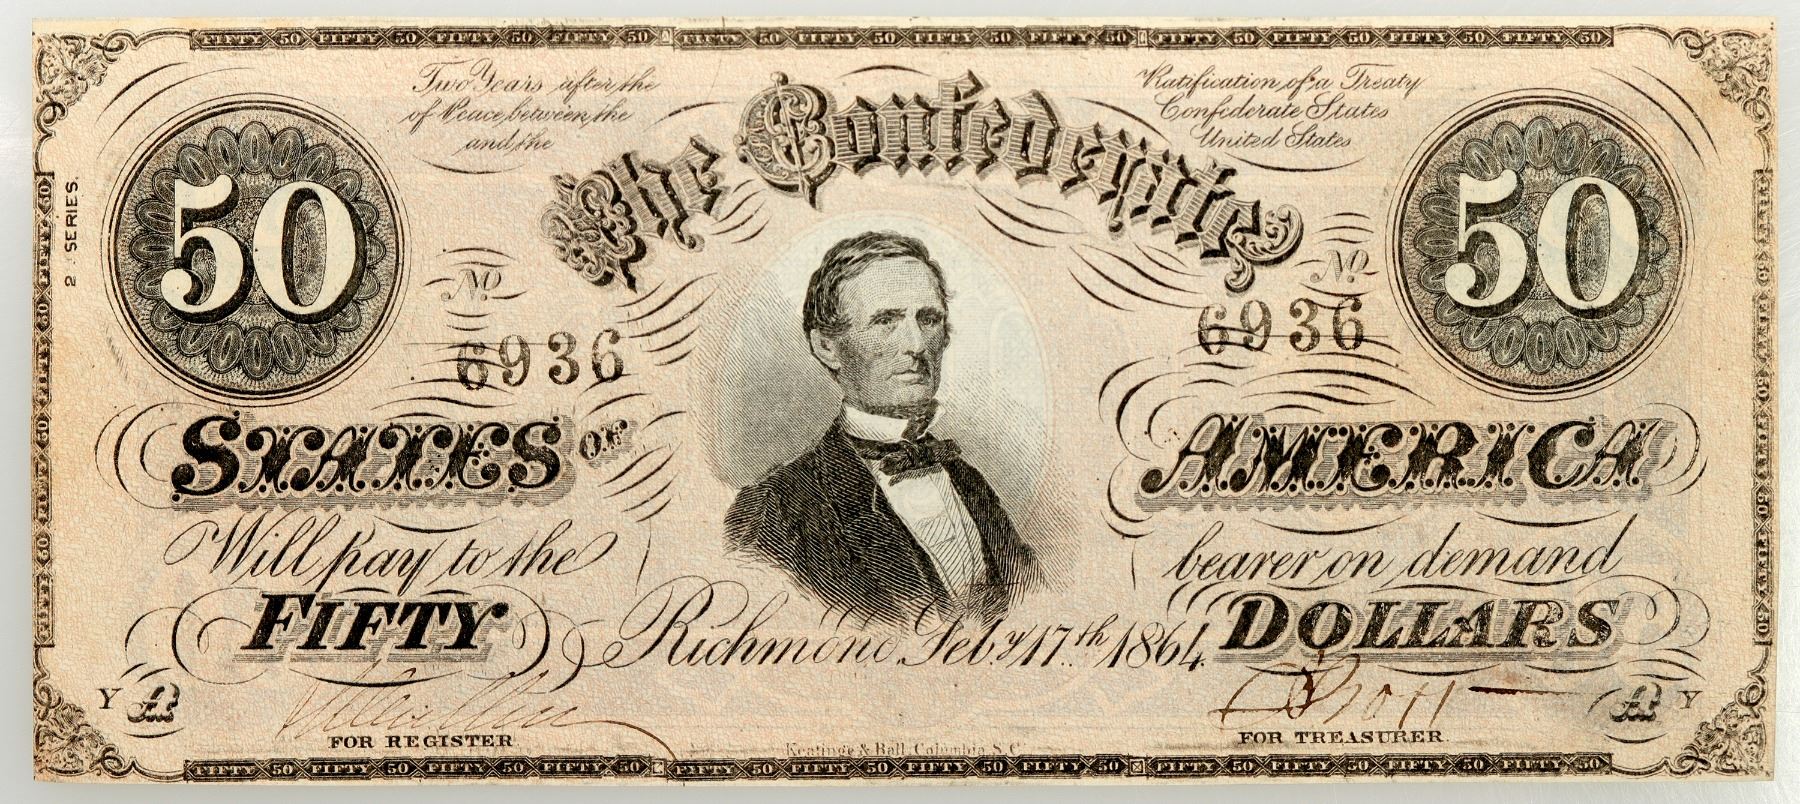 FIFTY 50 FIFTY 50 FIFTY 50 FIFTY 50 FIFTY 50 FIFTY 50 FIFTY 50 FIFTY 50 FIFTY 50 FIFTY 50 FIFTY 50 FIFTY 50
2 SERIES.
Two Years after the Ratification of a Treaty
of Peace between the Confederate States
and the United States
The Confederate
50 50
No No
6936 6936
STATES OF AMERICA
Will pay to the bearer on demand
FIFTY DOLLARS
Richmond Feby. 17th 1864
Y A A Y
FOR REGISTER FOR TREASURER.
Keatinge & Ball, Columbia, S.C.
FIFTY 50 FIFTY 50 FIFTY 50 FIFTY 50 FIFTY 50 FIFTY 50 FIFTY 50 FIFTY 50 FIFTY 50 FIFTY 50 FIFTY 50 FIFTY 50